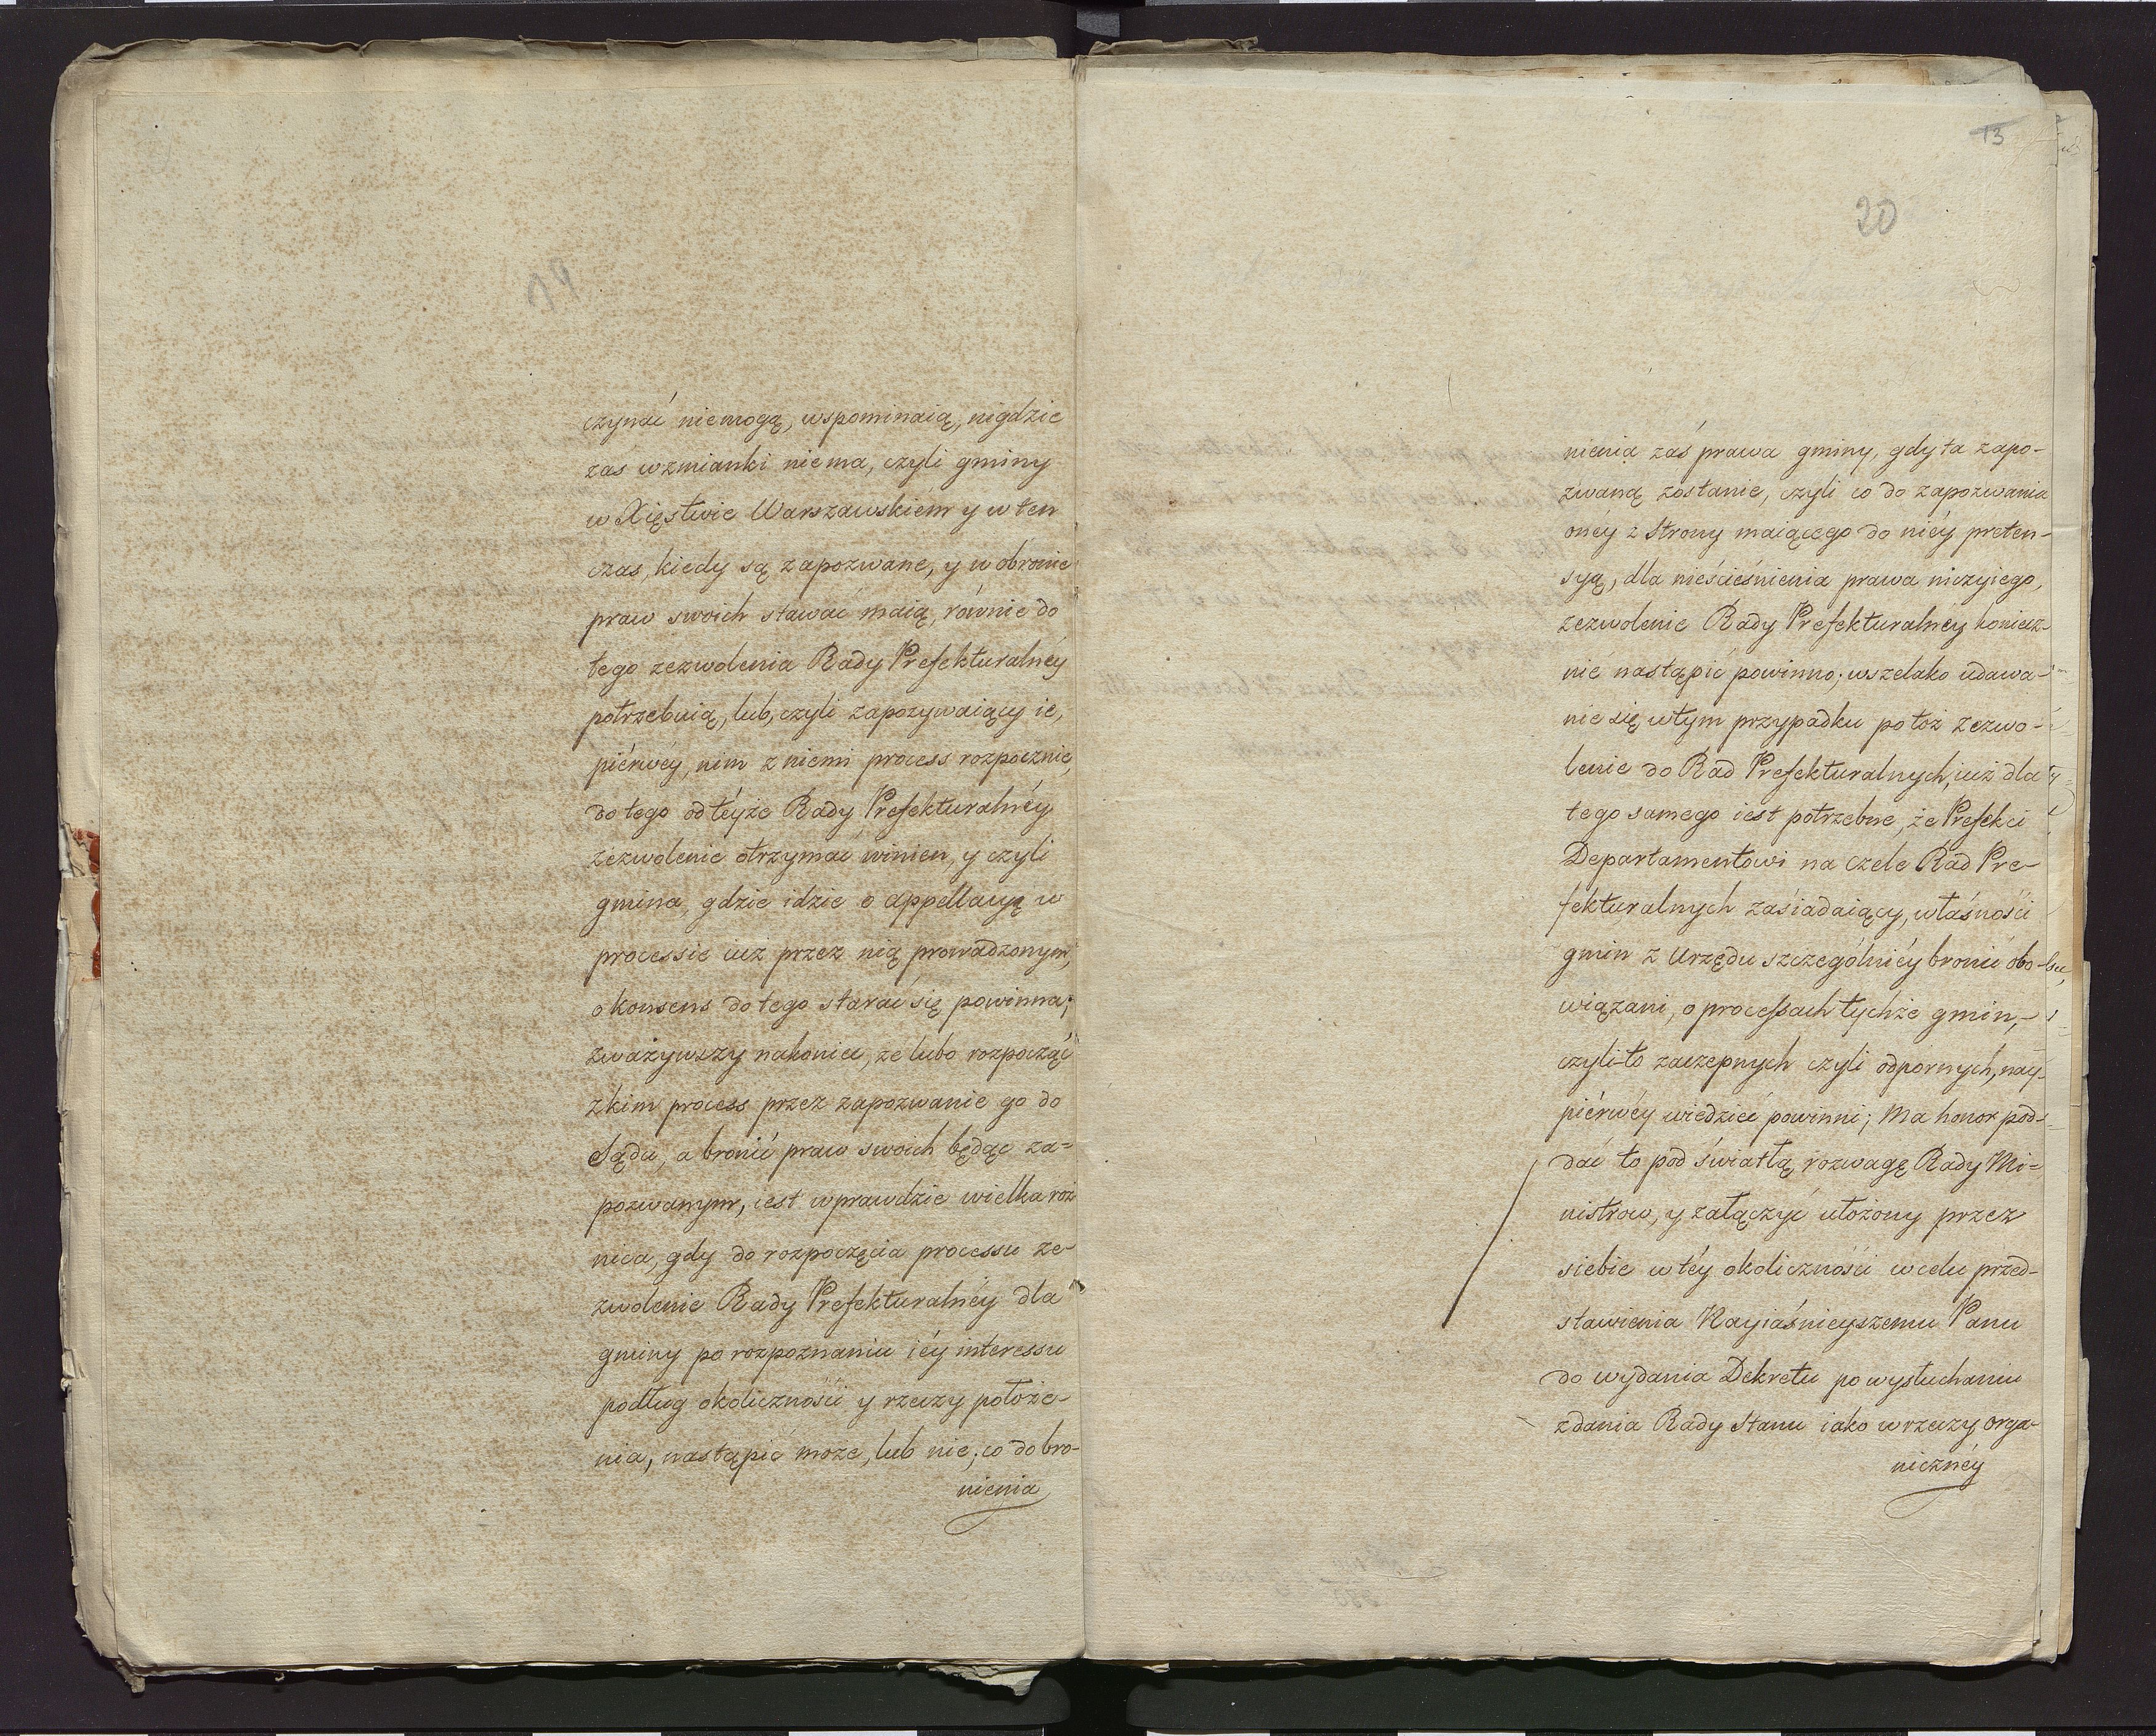 19
czynać niemogą, wspominaią, nigdzie
zas wzmianki niema, czyli gminy
w Xięstwie Warszawskiém y w ten
czas, kiedy są zapozwane, y w obronie
praw swoich stawać maią, równie do
tego zezwolenia Rady Prefekturalnéy
potrzebuią, lub, czyli zapozywaiący ie,
piérwéy, nim z niemi process rozpocznie,
do tego od téyże Rady Prefekturalnéy
zezwolenie otrzymać winien, y czyli
gmina, gdzie idzie o appellacyą w
processie iuż przez nią prowadzonym,
o konsens do tego starać się powinna;
zważywszy nakoniec, że lubo rozpocząć
z kim process przez zapozwanie go do
Sądu, a bronić praw swoich będąc za=
pozwanym, iest wprawdzie wielka róż
nica, gdy do rozpoczęcia processu ze-
zwolenie Rady Prefekturalnéy dla
gminy po rozpoznaniu iéy interessu
podług okoliczności y rzeczy położe-
nia, nastąpić może, lub nie; co do bro-
nienia
13
20
nienia zaś prawa gminy, gdy ta zapo-
zwaną zostanie, czyli co do zapozwania
onéy z Strony maiącego do niéy preten-
syą, dla nieścieśnienia prawa niczyiego,
zezwolenie Rady Prefekturalnéy koniecz-
nie nastąpić powinno; wszelako udawa-
nie się w tym przypadku po toż zezwo-
lenie do Rad Prefekturalnych, iuż dla
tego samego iest potrzebne, że Prefekci
Departamentowi na czele Rad Pre-
fekturalnych zasiadaiący, własności
gmin z Urzędu szczególniéy bronić obo-
wiązani, o processach tychże gmin,
czyli-to zaczepnych czyli odpornych, nay-
piérwéy wiedzieć powinni; Ma honor pod-
dać to pod światłą rozwagę Rady Mi=
nistrow, y załączyć ułożony przez
siebie w téy okoliczności w celu przed-
stawienia Nayiaśnieyszemu Panu
do wydania Dekretu po wysłuchaniu
zdania Rady Stanu iako w rzeczy orga-
nicznéy